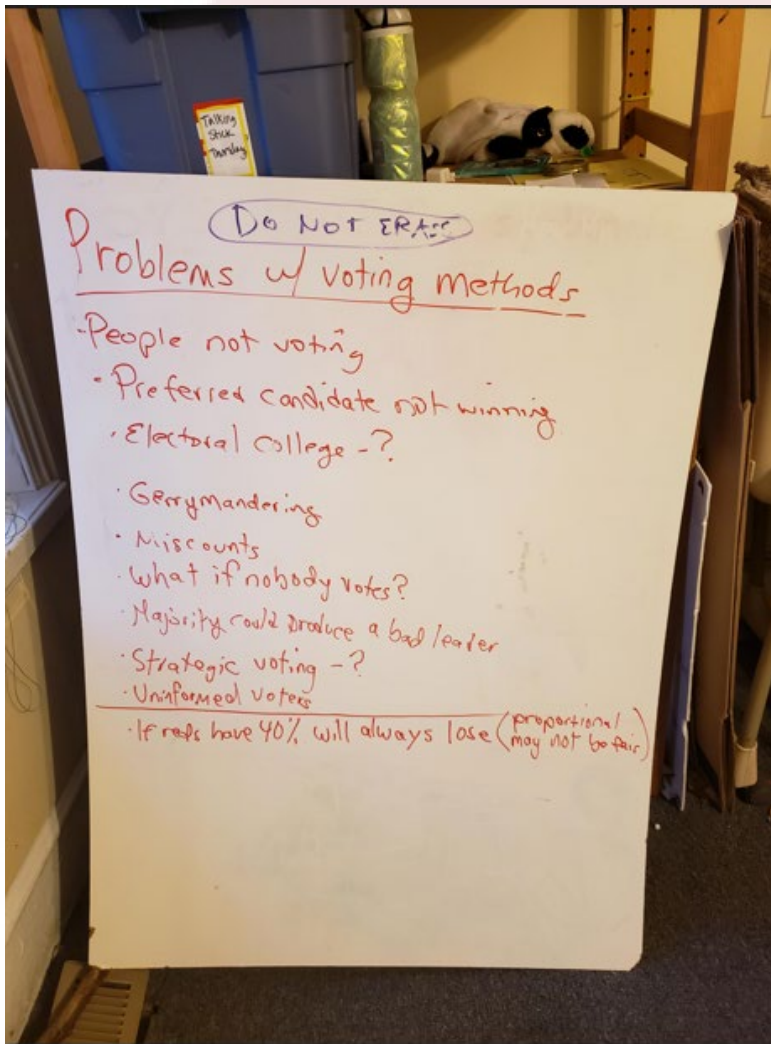 Talking
Stick
Thursday
DO NOT ERASE
Problems w/ voting methods
·People not voting
·Preferred candidate not winning
·Electoral college -?
·Gerrymandering
·Miscounts
·What if nobody votes?
·Majority could produce a bad leader
·Strategic voting -?
·Uninformed voters
·If reps have 40% will always lose (proportional
may not be fair)